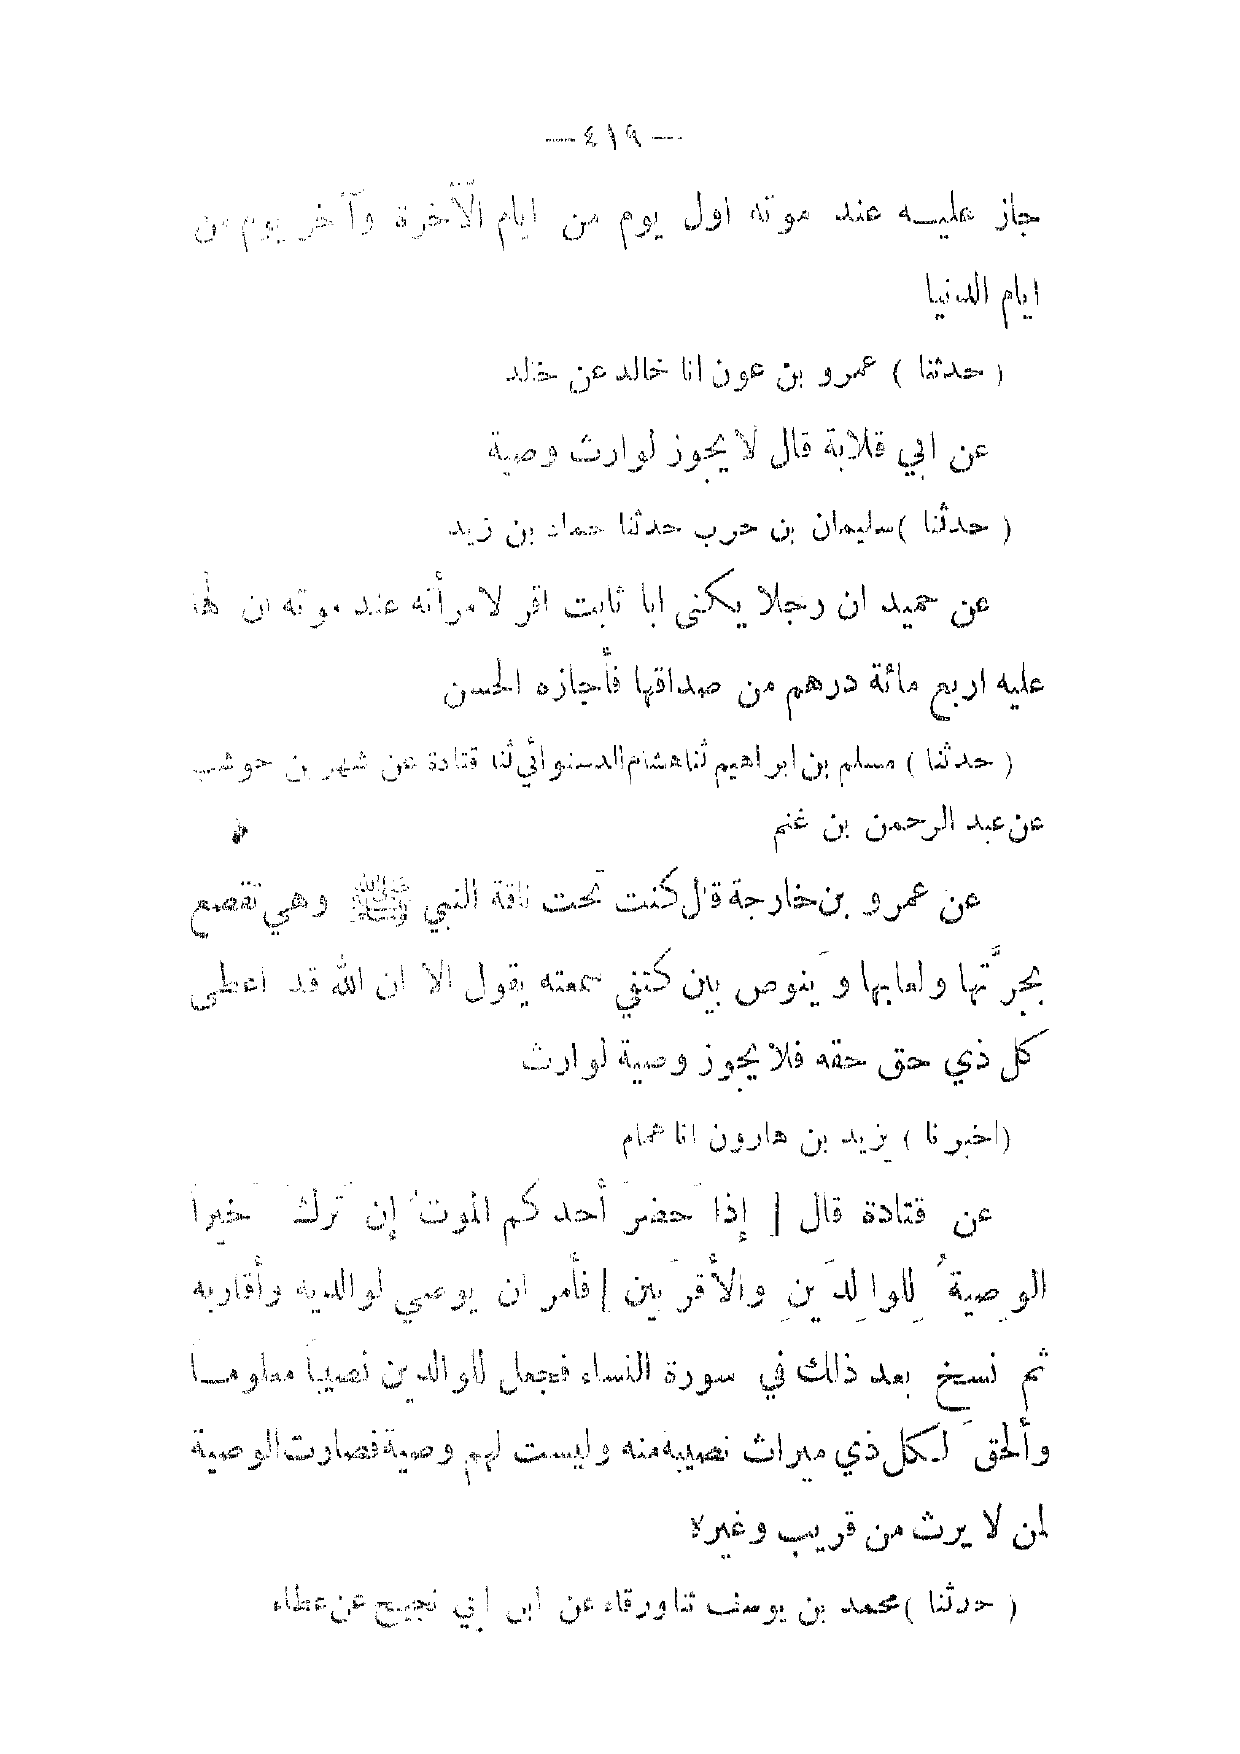 —٤١٩—
جاز عليه عند موته اول يوم من ايام الآخرة وآخر يوم من
ايام الدنيا
( حدثنا ) عمرو بن عون انا خالد عن خلد
عن ابي قلابة قال لا يجوز لوارث وصية
( حدثنا )سليمان بن حرب حدثنا حماد بن زيد
عن حميد ان رجلا يكنى ابا ثابت اقر لامرأته عند موته ان لها
عليه اربع مائة درهم من صداقها فأجازه الحسن
( حدثنا ) مسلم بن ابراهيم ثنا هشام الدستوائي ثنا قتادة عن شهر بن حوشب
عن عبد الرحمن بن غنم
عن عمرو بن خارجة قال كنت تحت ناقة النبي ﷺ وهي تقصع
بجرَّتها ولعابها وَينوص بين كتفي سمعته يقول الا ان الله قد اعطى
كل ذي حق حقه فلا يجوز وصية لوارث
(اخبرنا ) يزيد بن هارون انا همام
عن قتادة قال [ إذا حَضرَ أَحدكم الموتُ إن تَركَ خيراً
الوصيةُ للوالدَينِ والأَقرَبين ] فأمر ان يوصي لوالديه وأقاربه
ثم نسخ بعد ذلك في سورة النساء فجعل للوالدين نصيباً معلوماً
وألحقَ لكل ذي ميراث نصيبه منه وليست لهم وصية فصارت الوصية
لمن لا يرث من قريب وغيره
( حدثنا )محمد بن يوسف ثنا ورقاء عن ابن ابي نجيح عن عطاء